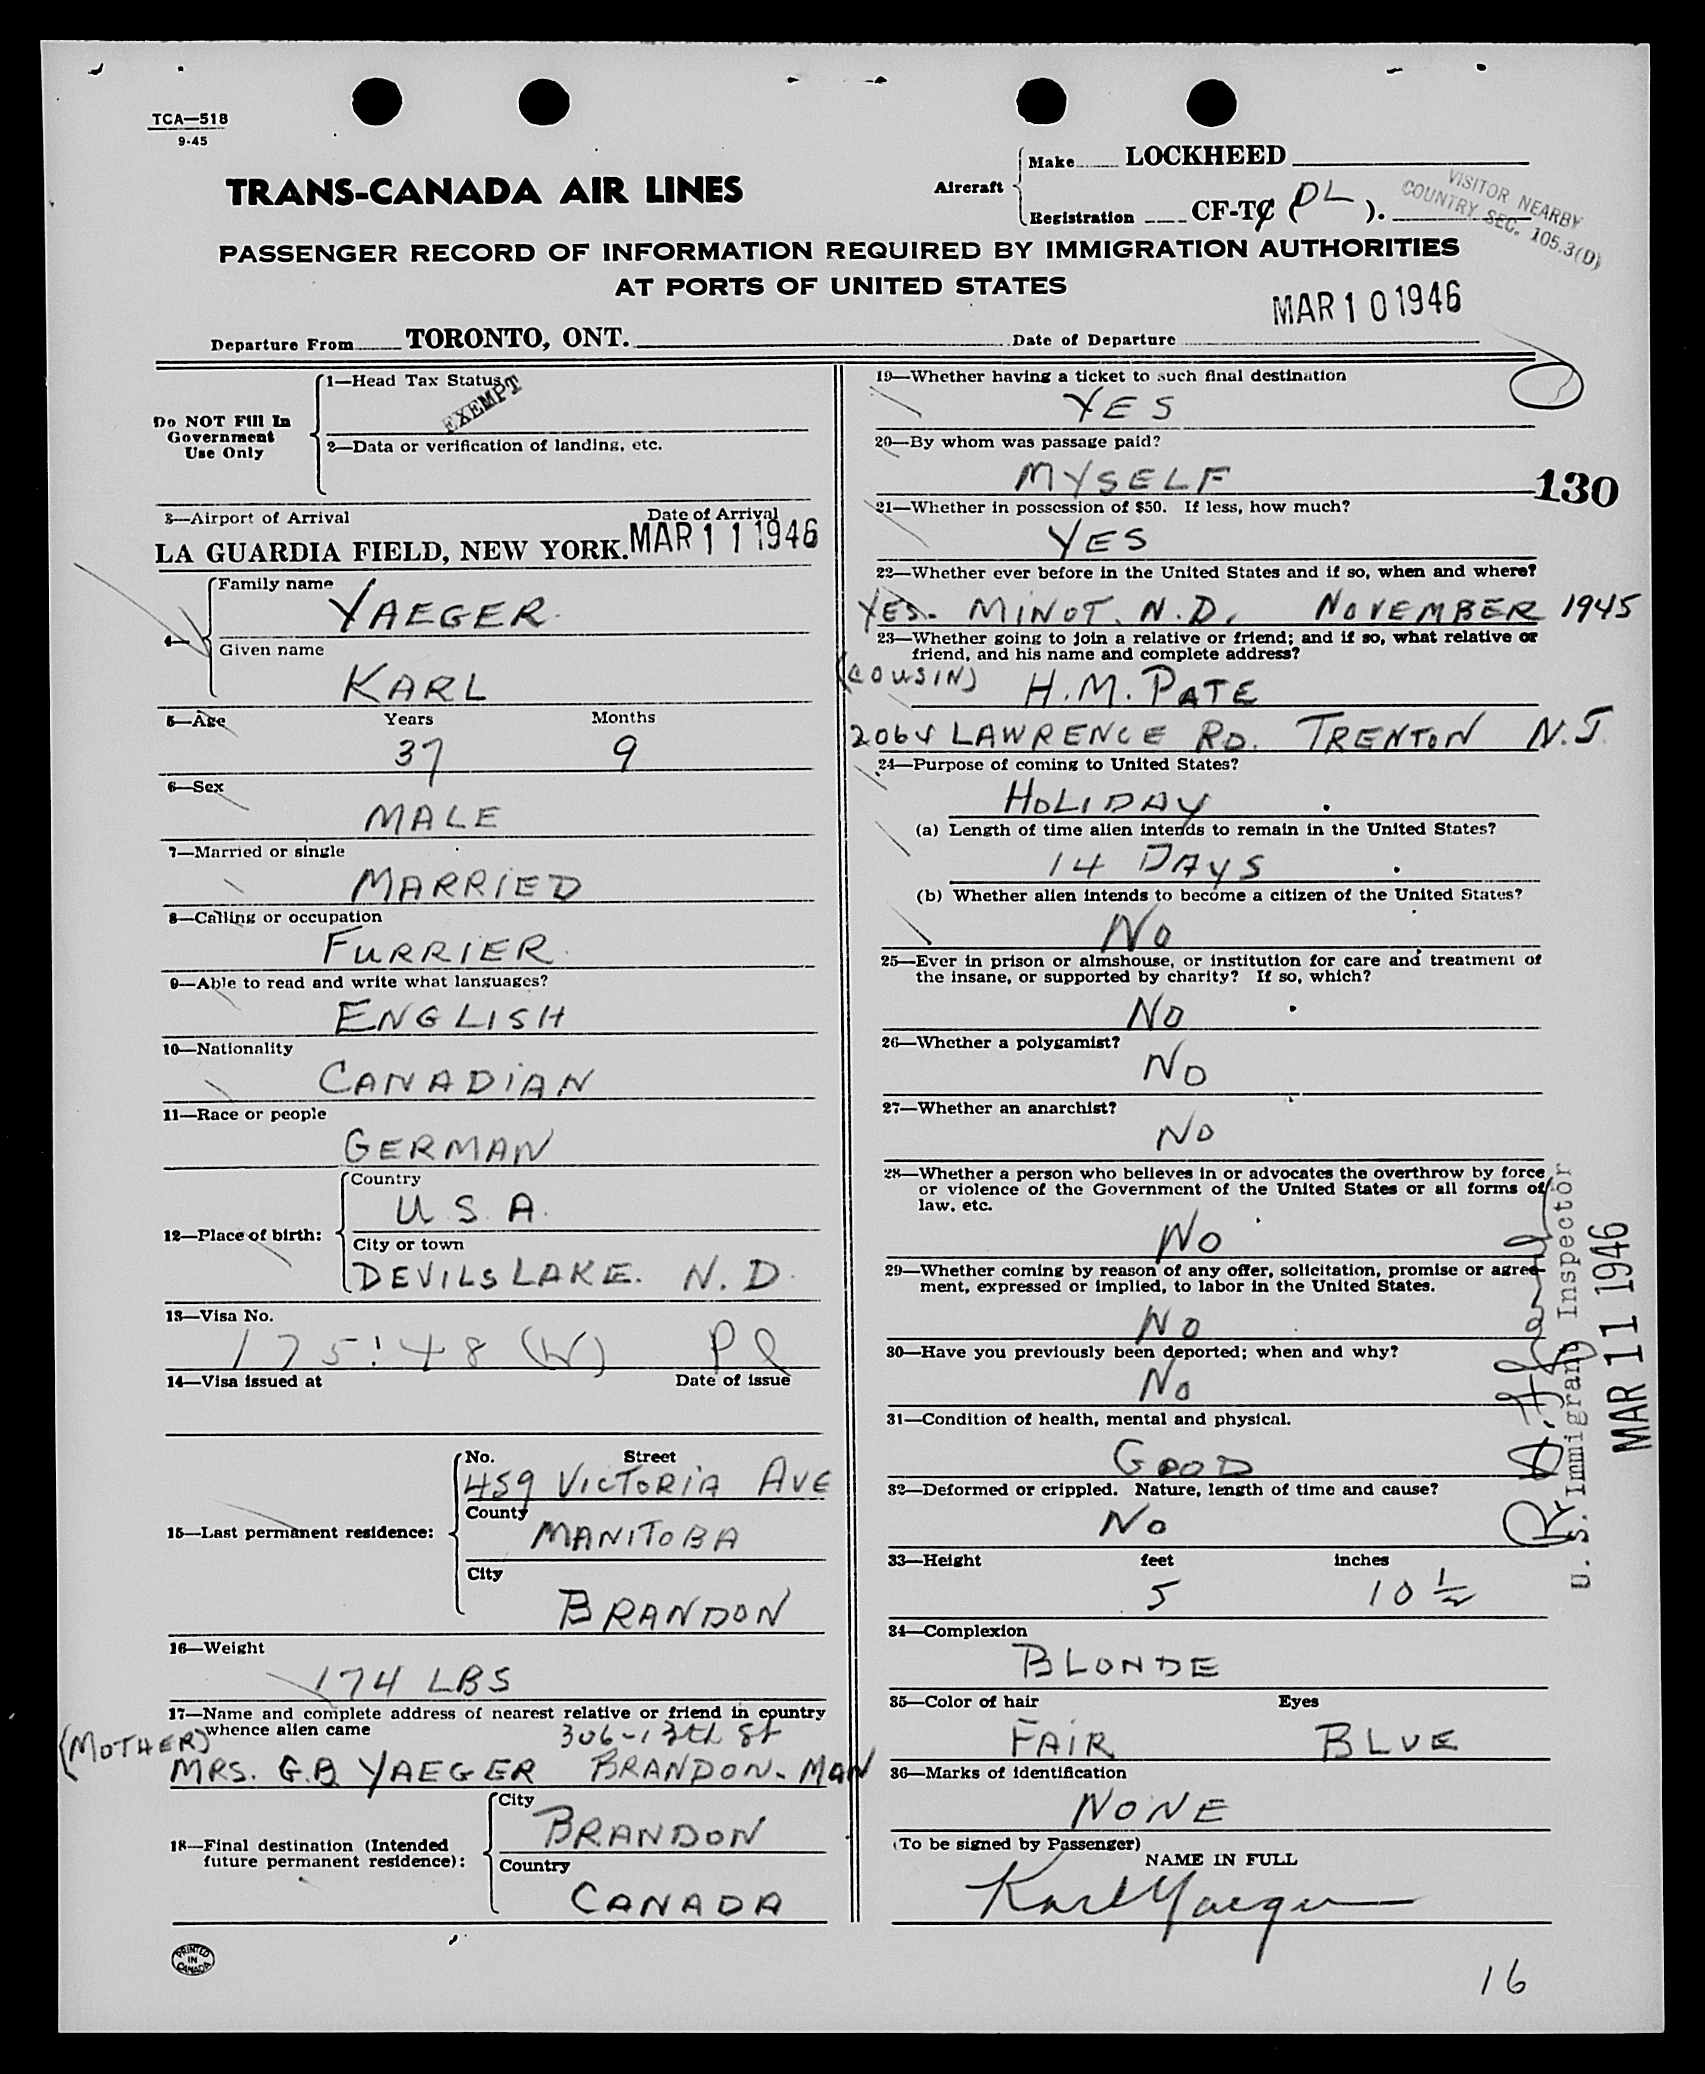 TCA—518
9-45
TRANS-CANADA AIR LINES
Aircraft
Make LOCKHEED
Registration CF-TC (DL).
VISITOR NEARBY
COUNTRY SEC. 105.3(D)
PASSENGER RECORD OF INFORMATION REQUIRED BY IMMIGRATION AUTHORITIES
AT PORTS OF UNITED STATES
MAR 10 1946
Departure From TORONTO, ONT. Date of Departure
Do NOT Fill In
Government
Use Only
1—Head Tax Status
EXEMPT
2—Data or verification of landing, etc.
3—Airport of Arrival Date of Arrival
LA GUARDIA FIELD, NEW YORK. MAR 11 1946
4—
Family name
YAEGER
Given name
KARL
5—Age Years Months
37 9
6—Sex
MALE
7—Married or single
MARRIED
8—Calling or occupation
FURRIER
9—Able to read and write what languages?
ENGLISH
10—Nationality
CANADIAN
11—Race or people
GERMAN
12—Place of birth:
Country
U.S.A.
City or town
DEVILS LAKE. N.D.
13—Visa No.
175:48 (W) Pl
14—Visa issued at Date of issue
15—Last permanent residence:
No. Street
459 VICTORIA AVE
County
MANITOBA
City
BRANDON
16—Weight
174 LBS
17—Name and complete address of nearest relative or friend in country
whence alien came 306-13th St
(MOTHER)
MRS. G.B YAEGER BRANDON. MAN
18—Final destination (Intended
future permanent residence):
City
BRANDON
Country
CANADA
PRINTED
IN
CANADA
19—Whether having a ticket to such final destination
YES
20—By whom was passage paid?
MYSELF
130
21—Whether in possession of $50. If less, how much?
YES
22—Whether ever before in the United States and if so, when and where?
YES. MINOT. N.D. NOVEMBER 1945
23—Whether going to join a relative or friend; and if so, what relative or
friend, and his name and complete address?
(COUSIN) H.M. PATE
2064 LAWRENCE RD. TRENTON N.J.
24—Purpose of coming to United States?
HOLIDAY
(a) Length of time alien intends to remain in the United States?
14 DAYS
(b) Whether alien intends to become a citizen of the United States?
NO
25—Ever in prison or almshouse, or institution for care and treatment of
the insane, or supported by charity? If so, which?
NO
26—Whether a polygamist?
NO
27—Whether an anarchist?
NO
28—Whether a person who believes in or advocates the overthrow by force
or violence of the Government of the United States or all forms of
law, etc.
NO
29—Whether coming by reason of any offer, solicitation, promise or agree-
ment, expressed or implied, to labor in the United States.
NO
30—Have you previously been deported; when and why?
NO
31—Condition of health, mental and physical.
GOOD
32—Deformed or crippled. Nature, length of time and cause?
NO
33—Height feet inches
5 10 1/2
34—Complexion
BLONDE
35—Color of hair Eyes
FAIR BLUE
36—Marks of identification
NONE
(To be signed by Passenger)
NAME IN FULL
Karl Yaeger
U. S. Immigrant Inspector
MAR 11 1946
16